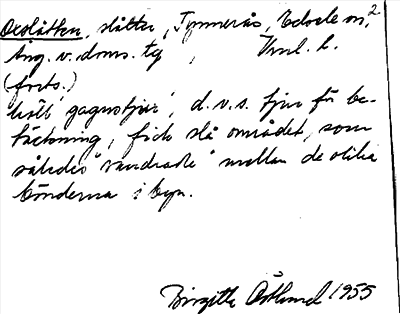 Oxslåtten, slåtter, Tynnerås, Edsele sn, 2
Ång. v. dms. tg, Vnl. l.
(forts.)
höll "gagnstjur", d.v.s. tjur för be-
täckning, fick slå området, som
således "vandrade" mellan de olika
bönderna i byn.
Birgitta Östlund 1955